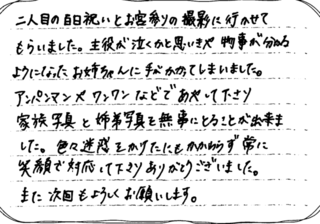 二人目の百日祝いとお宮参りの撮影に行かせて
もらいました。主役が泣くかと思いきや 物事が分かる
ようになったお姉ちゃんに手がかかってしまいました。
アンパンマンやワンワンなどであやして下さり
家族写真と姉弟写真を無事にとることが出来ま
した。色々迷惑をかけたにもかかわらず常に
笑顔で対応して下さりありがとうございました。
また次回もよろしくお願いします。